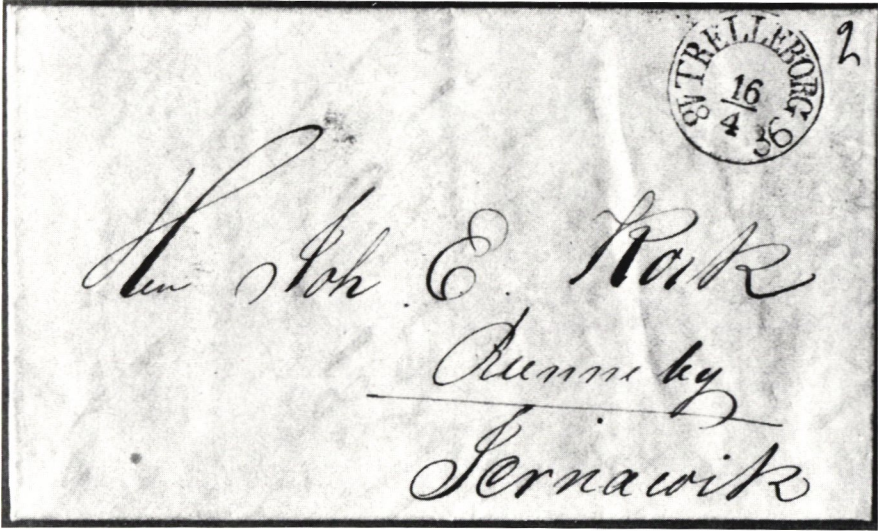 TRELLEBORG
16
4
1836
2
Herr Joh. E. Kock
Runneby
Jernawik